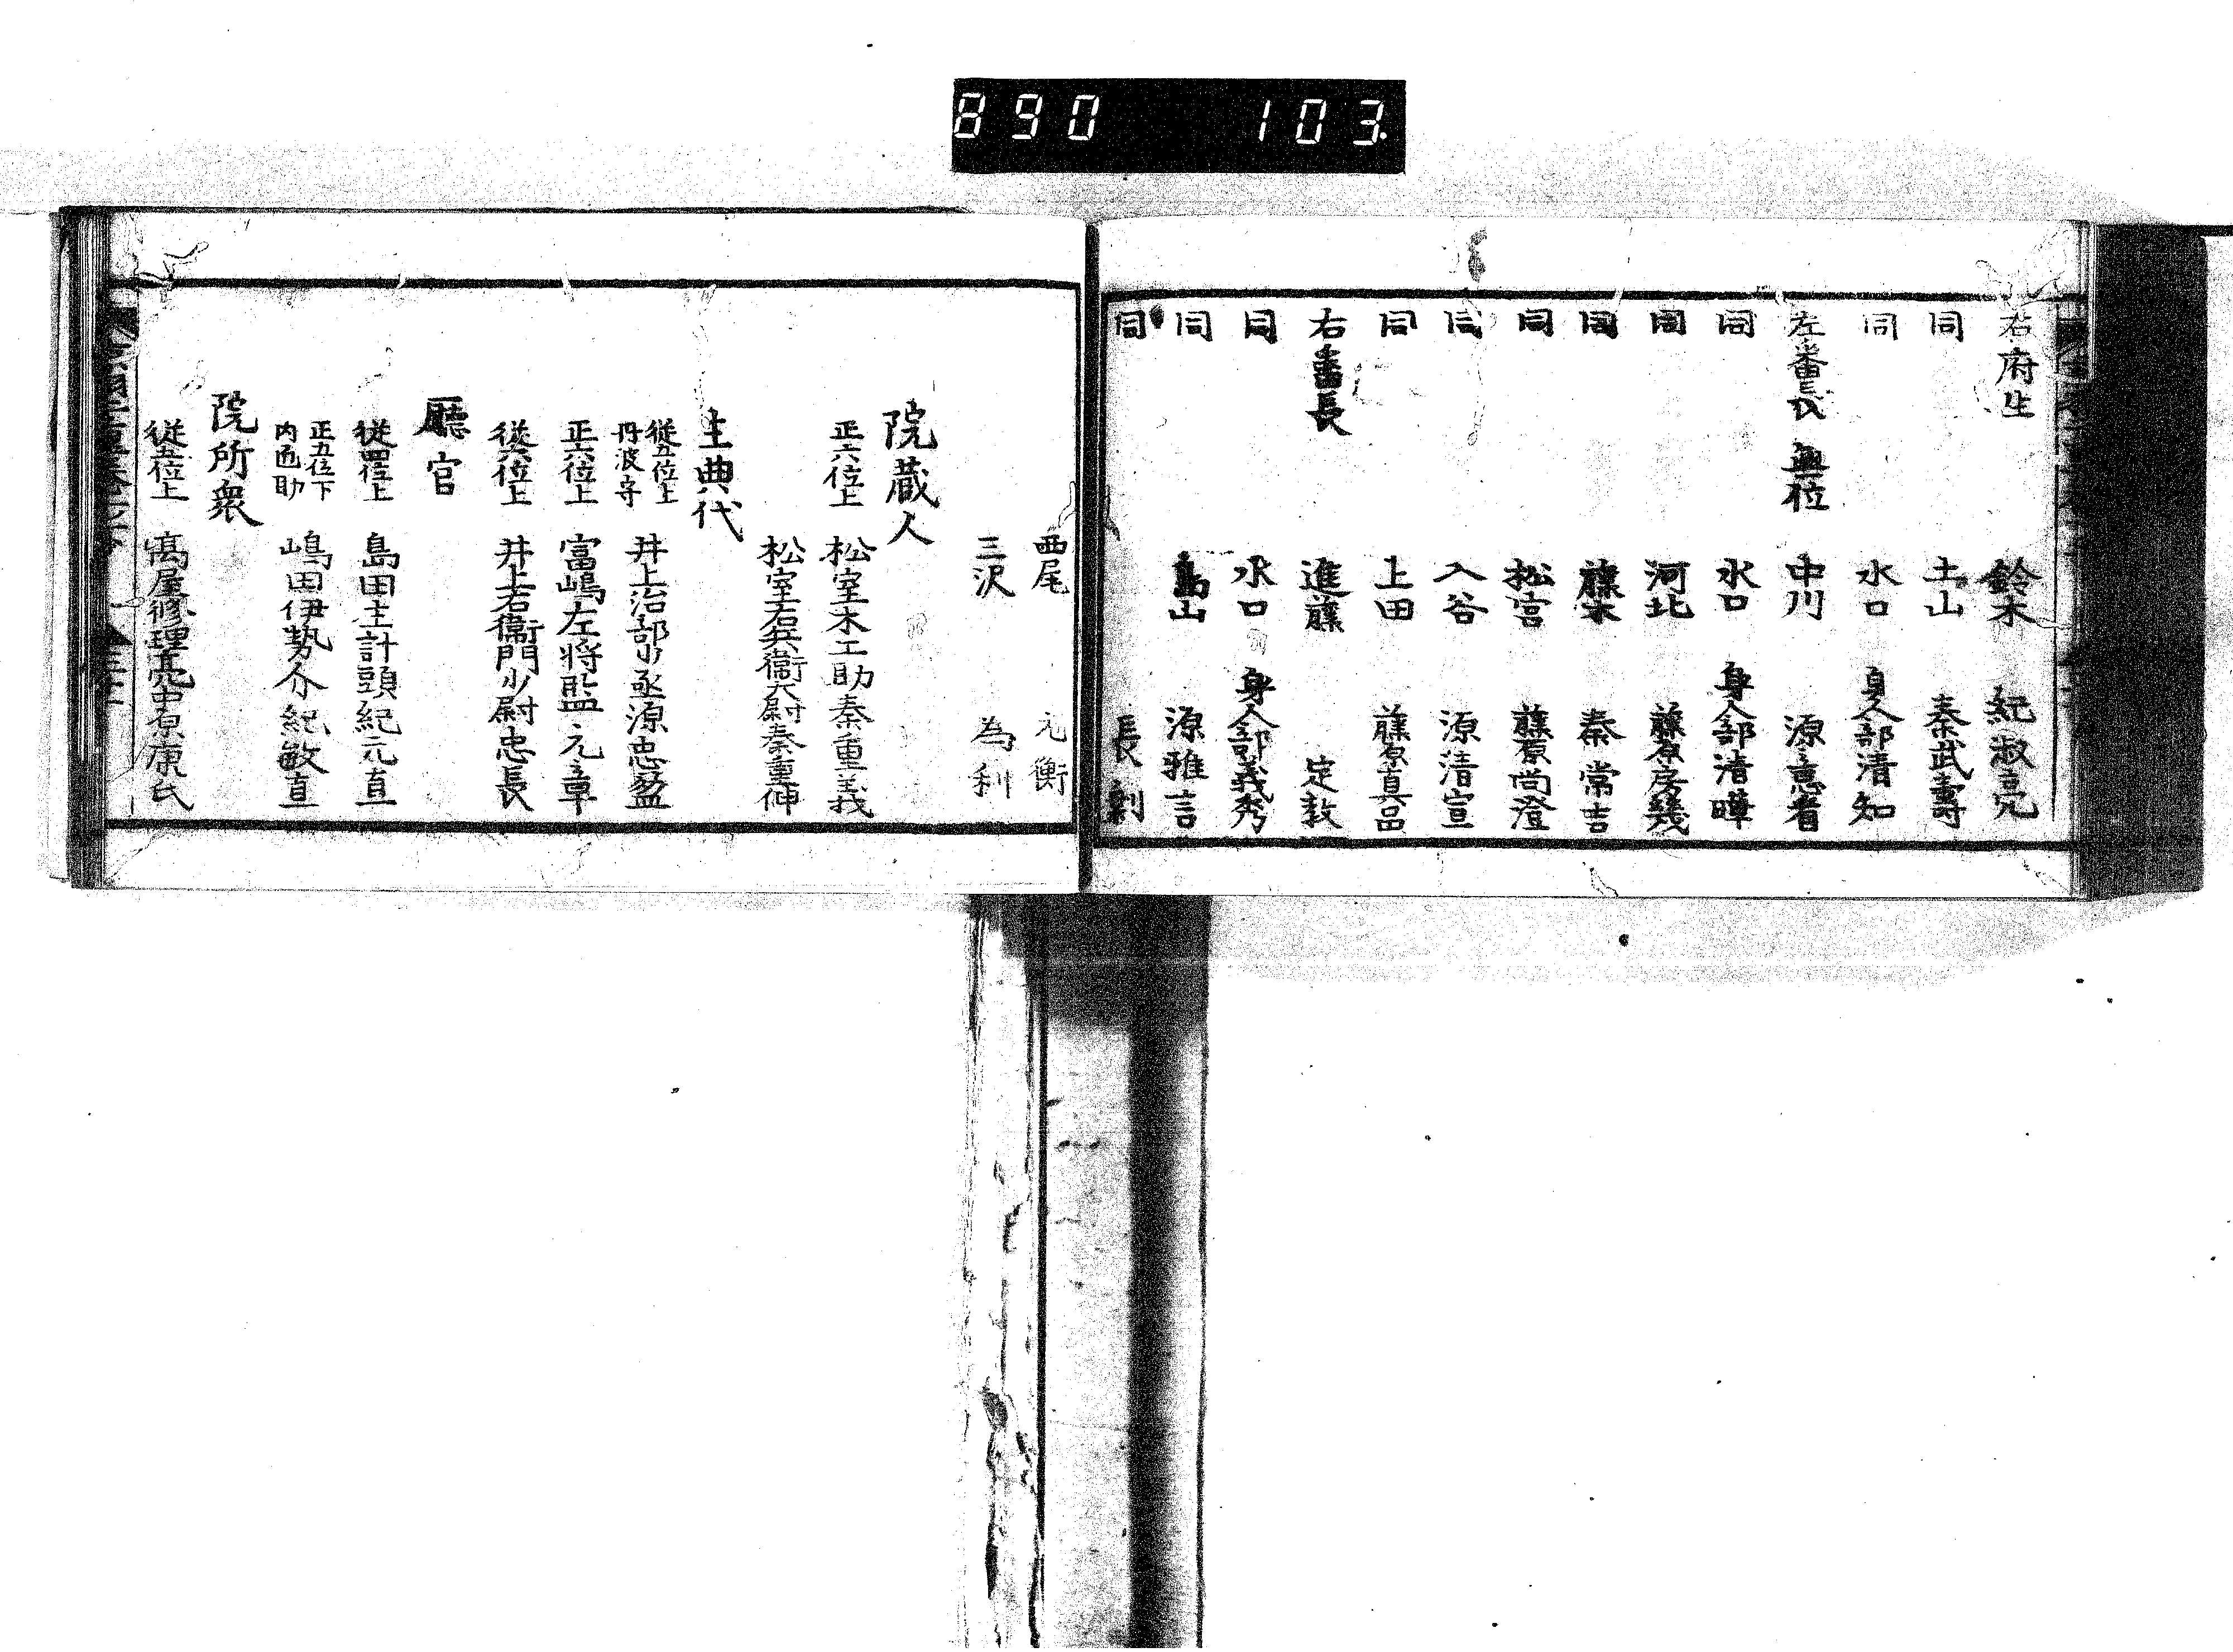 890 103
右府生 鈴木 紀淑亮
同 土山 秦武壽
同 水口 身人部清知
左番長 無位 中川 源意看
同 水口 身人部清暉
同 河北 藤原房幾
同 藤木 秦常吉
同 松宮 藤原尚澄
同 入谷 源清宣
同 上田 藤原真品
右番長 進藤 定敦
同 水口 身人部義秀
同 畠山 源雅言
同 長利
西尾 元衡
三沢 為利
院蔵人
正六位上 松室木工助秦重義
松室右兵衛大尉秦重伸
主典代
従五位上 丹波守 井上治部少丞源忠盈
正六位上 富嶋左将監元章
従六位上 井上右衛門少尉忠長
廳官
従四位上 島田主計頭紀元直
正五位下 内匠助 嶋田伊勢介紀敏直
院所衆
従五位上 高屋修理亮中原康氏